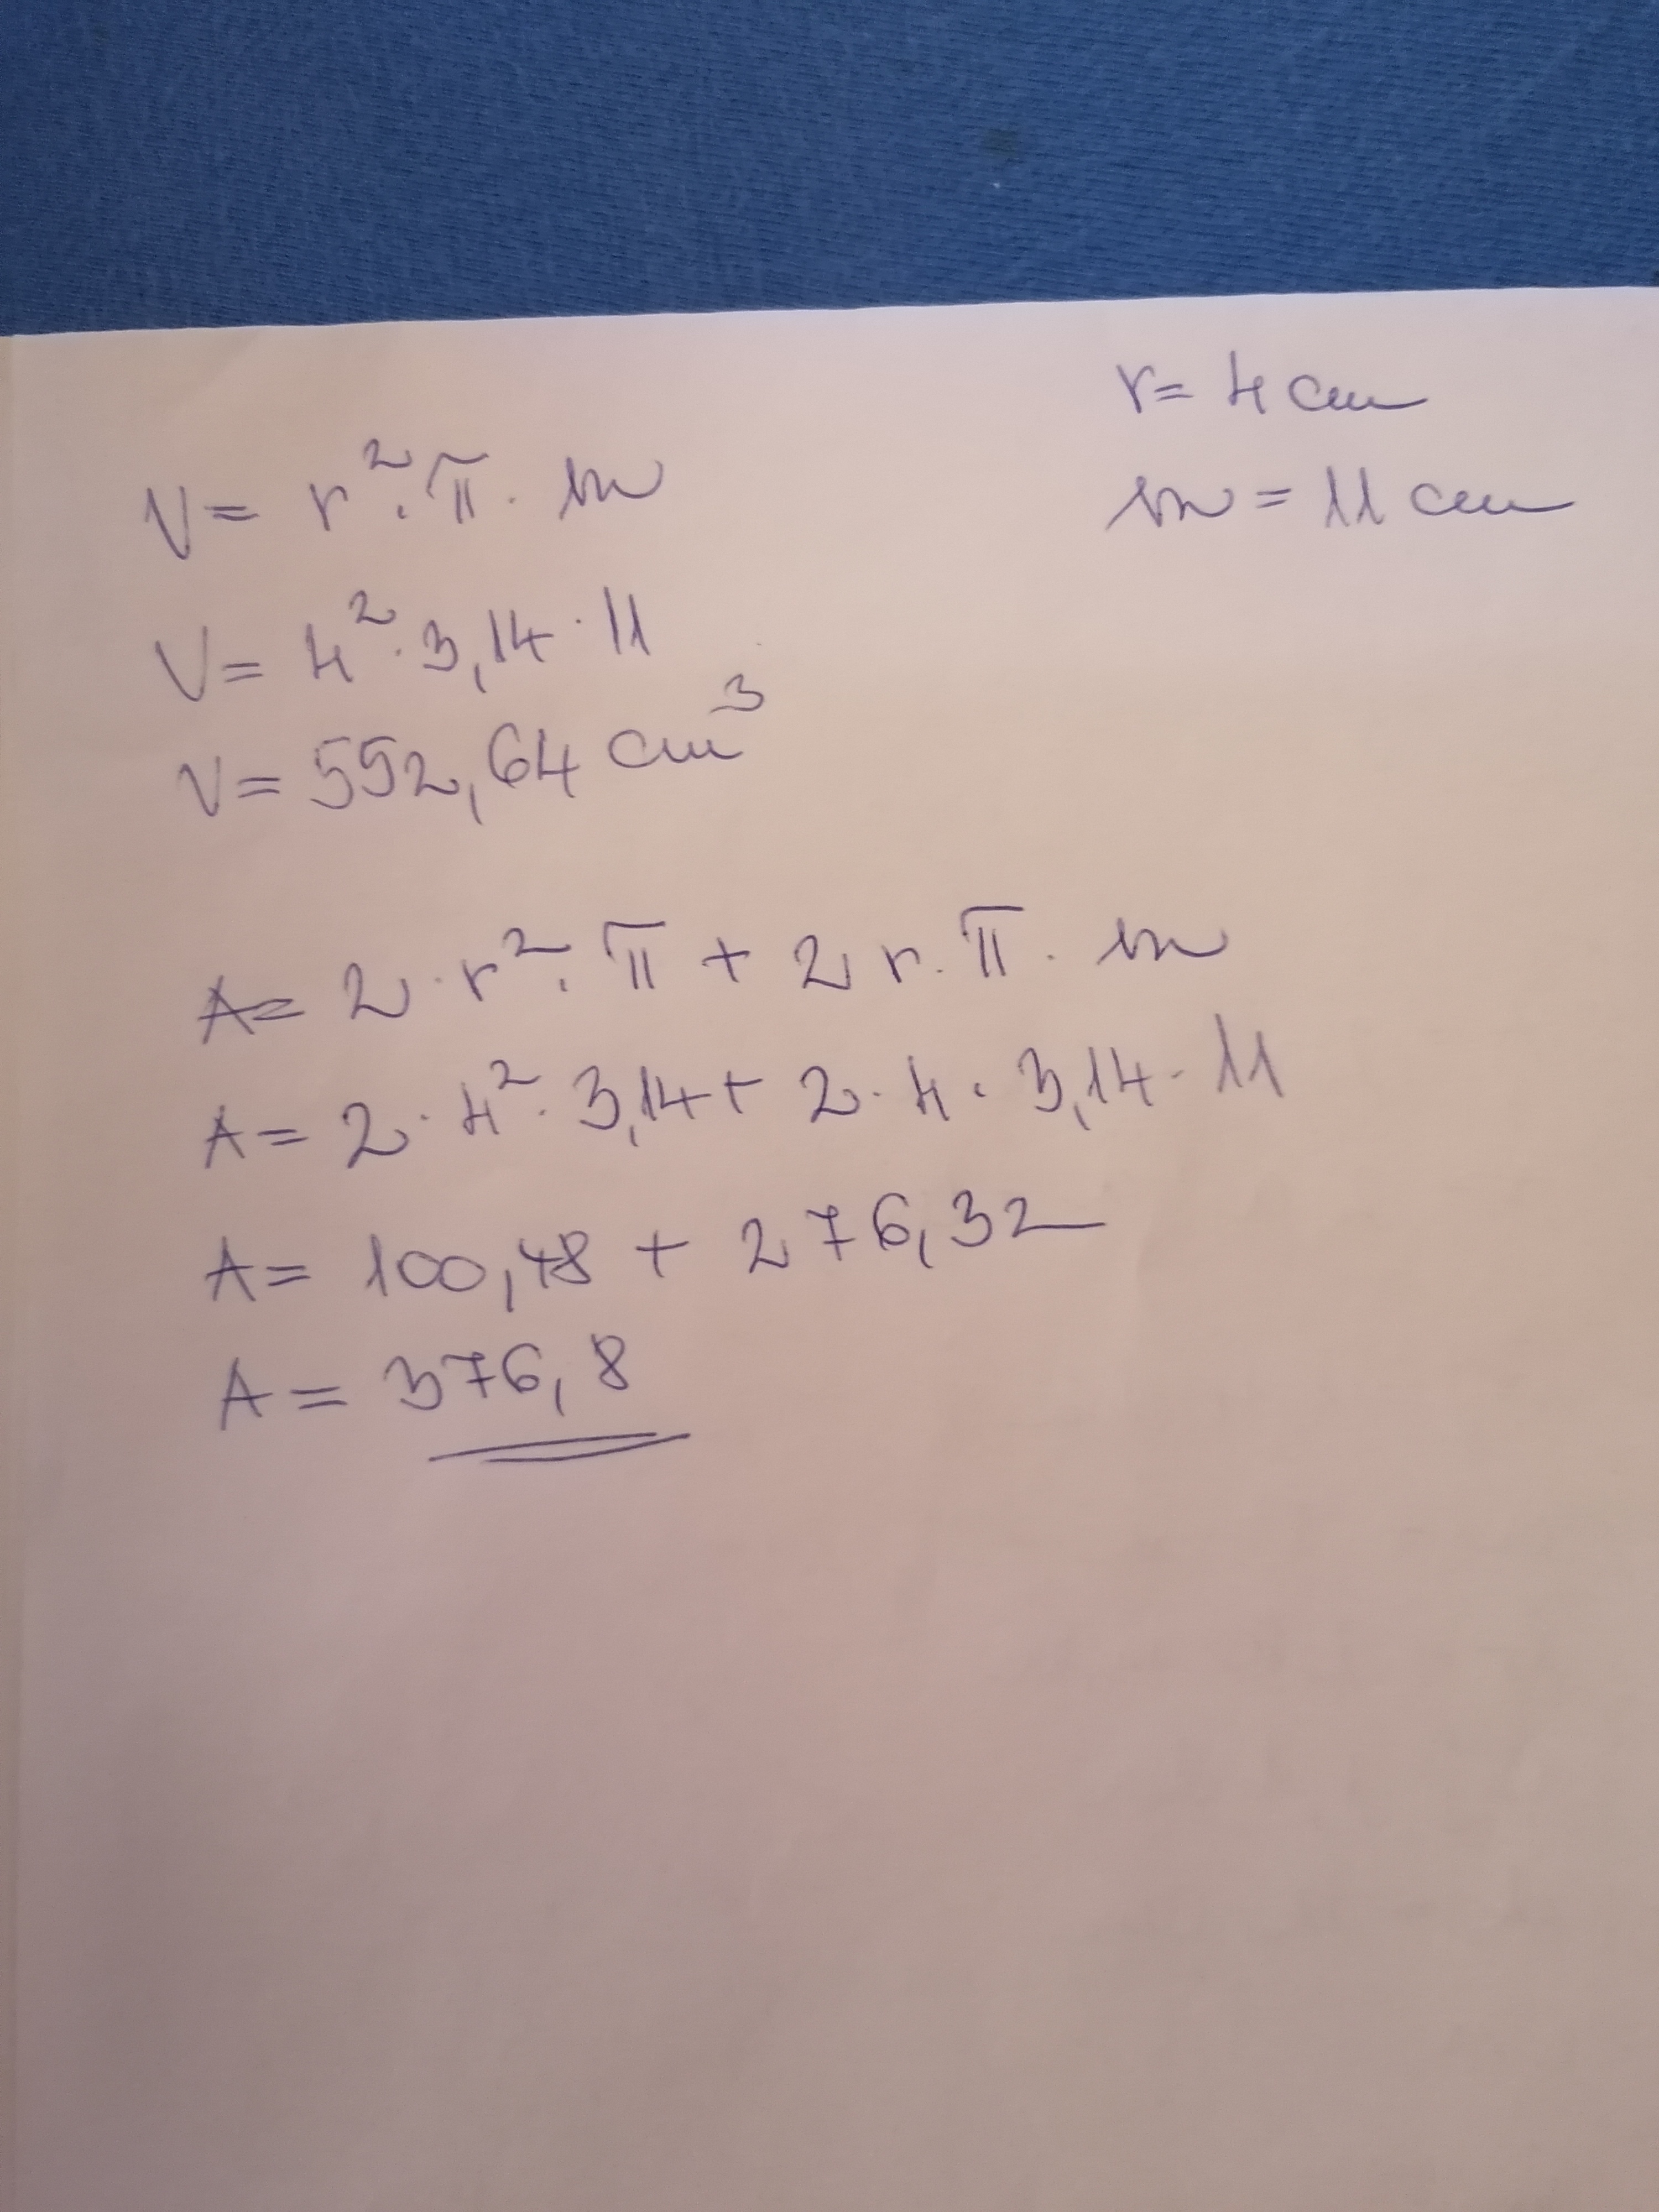 r = 4 cm
m = 11 cm
V = r² · π · m
V = 4² · 3,14 · 11
V = 552,64 cm³
A = 2 · r² · π + 2 r · π · m
A = 2 · 4² · 3,14 + 2 · 4 · 3,14 · 11
A = 100,48 + 276,32
A = 376,8